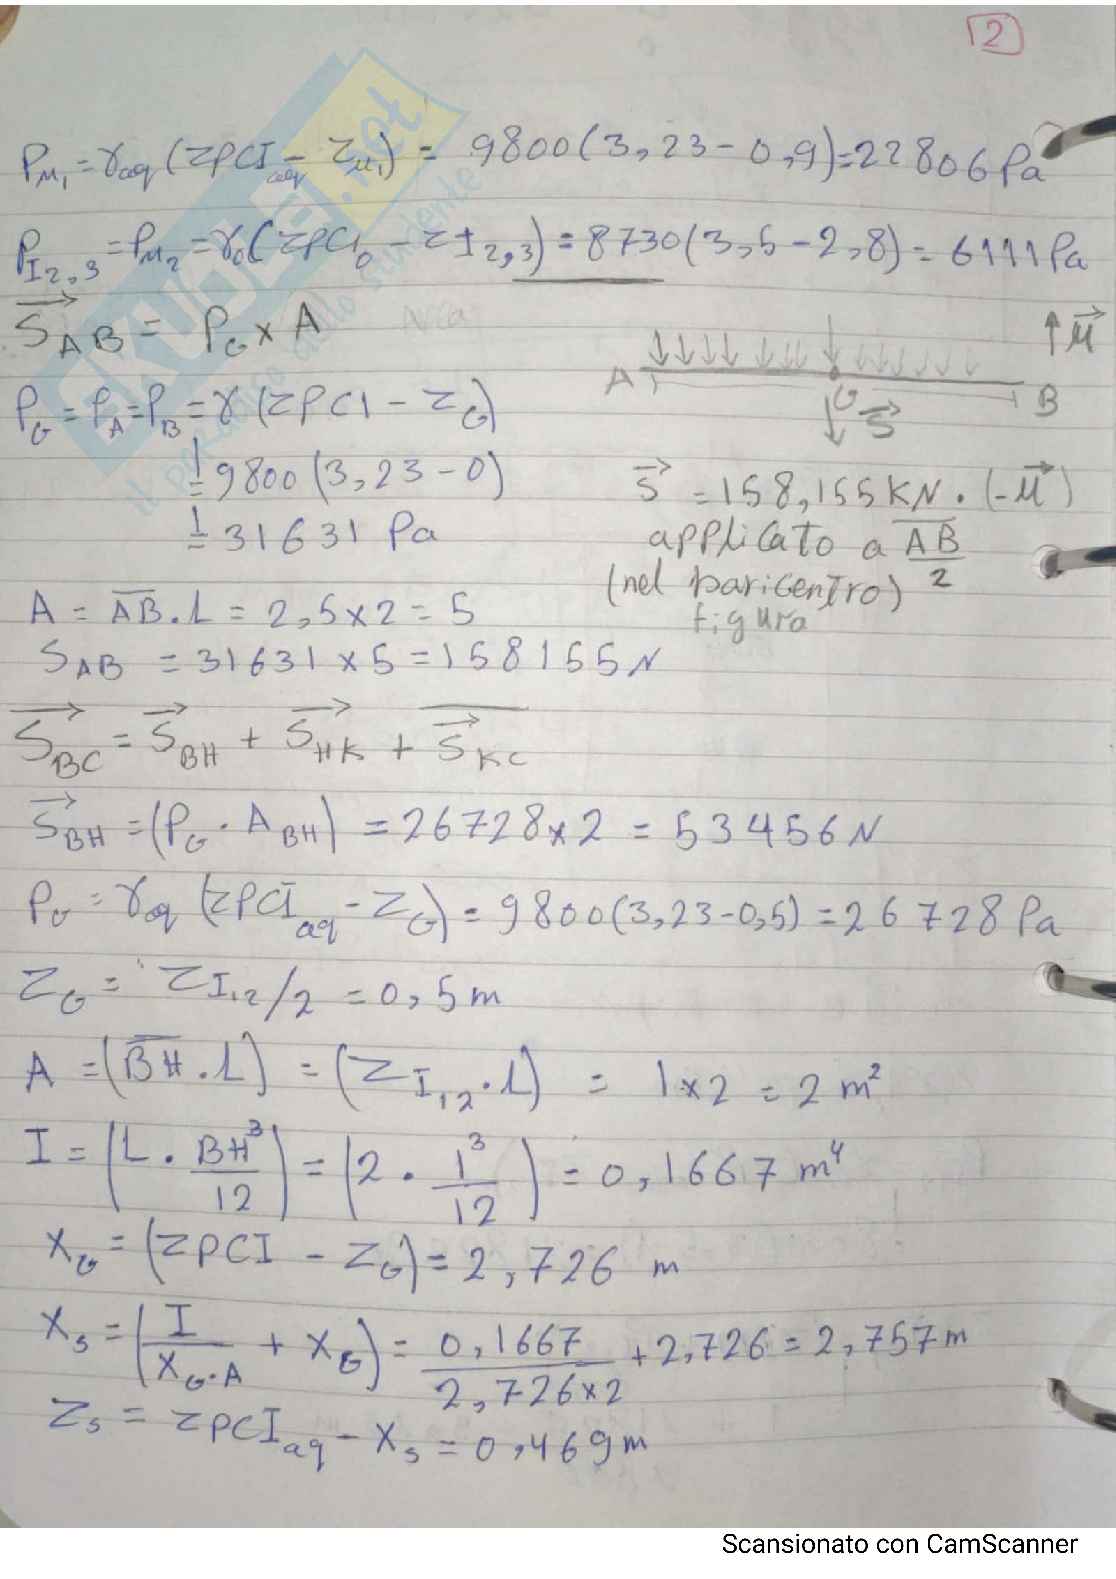 2
P_{M_1} = γ_{aq} (ZPCI_{aq} - Z_{M_1}) = 9800(3,23-0,9)=22806 Pa
P_{I2,3} = P_{M_2} = γ_o(ZPCI_o - ZI_{2,3}) = 8730(3,5-2,8) = 6111 Pa
S_{AB} = P_G x A
P_G = P_A = P_B = γ (ZPCI - Z_G)
= 9800 (3,23-0)
= 31631 Pa
A = AB.L = 2,5x2 = 5
S_{AB} = 31631 x 5 = 158155 N
A G B
S
μ
S = 158,155 KN . (-μ)
applicato a AB/2
(nel baricentro)
figura
S_{BC} = S_{BH} + S_{HK} + S_{KC}
S_{BH} = (P_G . A_{BH}) = 26728x2 = 53456 N
P_G = γ_{aq} (ZPCI_{aq} - Z_G) = 9800(3,23-0,5) = 26728 Pa
Z_G = Z_{I1,2}/2 = 0,5m
A = (BH.L) = (Z_{I1,2}.L) = 1x2 = 2 m²
I = (L . BH³/12) = (2 . 1³/12) = 0,1667 m⁴
X_G = (ZPCI - Z_G) = 2,726 m
X_s = (I/(X_G.A) + X_G) = 0,1667/(2,726x2) + 2,726 = 2,757m
Z_s = ZPCI_{aq} - X_s = 0,469m
SKUOLA.net
Scansionato con CamScanner